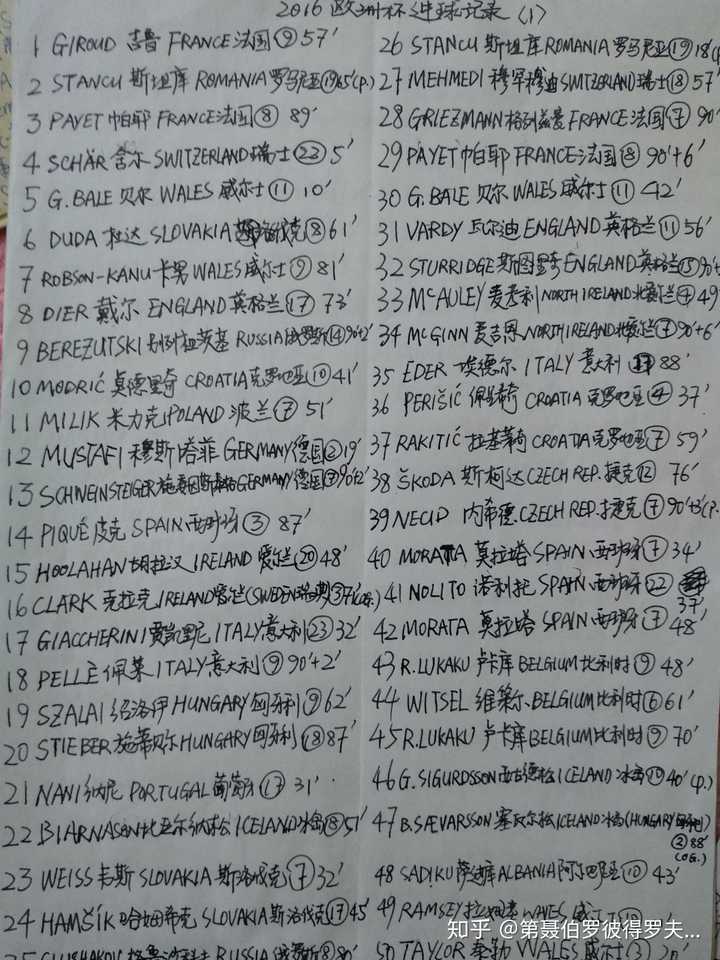 2016欧洲杯进球记录(1)
1 GIROUD 吉鲁 FRANCE法国⑨57′
2 STANCU 斯坦库 ROMANIA罗马尼亚⑲65′(P.)
3 PAYET 帕耶 FRANCE法国⑧ 89′
4 SCHÄR 舍尔 SWITZERLAND瑞士㉒5′
5 G.BALE 贝尔 WALES 威尔士⑪ 10′
6 DUDA 杜达 SLOVAKIA 斯洛伐克⑧61′
7 ROBSON-KANU卡努WALES威尔士⑨81′
8 DIER 戴尔 ENGLAND英格兰⑰73′
9 BEREZUTSKI 别列祖茨基 RUSSIA俄罗斯⑭90+2′
10 MODRIĆ 莫德里奇 CROATIA克罗地亚⑩41′
11 MILIK 米力克 POLAND 波兰⑦ 51′
12 MUSTAFI 穆斯塔菲 GERMANY德国②19′
13 SCHNEINSTEIGER施魏因斯泰格GERMANY德国⑦90+2′
14 PIQUÉ皮克 SPAIN西班牙③ 87′
15 HOOLAHAN 胡拉汉 IRELAND 爱尔兰⑳48′
16 CLARK 克拉克 IRELAND爱尔兰(SWEDEN瑞典)③71′(O.G.)
17 GIACCHERINI贾凯里尼 ITALY意大利㉓32′
18 PELLÈ佩莱ITALY意大利⑨90′+2′
19 SZALAI绍洛伊HUNGARY匈牙利⑨62′
20 STIEBER施蒂贝尔HUNGARY匈牙利⑱87′
21 NANI纳尼 PORTUGAL葡萄牙⑰ 31′
22 BIARNASON比亚尔纳松ICELAND冰岛⑧51′
23 WEISS韦斯 SLOVAKIA 斯洛伐克⑦32′
24 HAMŠÍK哈姆希克 SLOVAKIA斯洛伐克⑰45′
RUSSIA俄罗斯⑧80′
26 STANCU 斯坦库 ROMANIA 罗马尼亚⑲18′(P.
27 MEHMEDI 穆罕穆迪SWITZERLAND瑞士⑱57′
28 GRIEZMANN格列兹曼 FRANCE法国⑦ 90′
29 PAYET 帕耶 FRANCE法国⑧ 90′+6′
30 G.BALE 贝尔 WALES 威尔士⑪ 42′
31 VARDY 瓦尔迪 ENGLAND 英格兰⑪56′
32 STURRIDGE斯图里奇ENGLAND英格兰⑮90′+
33 MCAULEY 麦考利NORTH IRELAND北爱尔兰④49
34 MCGINN 麦吉恩NORTH IRELAND北爱尔兰⑦90′+6′
35 EDER 埃德尔 ITALY意大利⑰88′
36 PERIŠIĆ 佩里希奇 CROATIA 克罗地亚④ 37′
37 RAKITIĆ 拉基蒂奇CROATIA克罗地亚⑦ 59′
38 ŠKODA 斯柯达CZECH REP.捷克⑫ 76′
39 NECID 内希德.CZECH REP.捷克⑦90′+3′(P.
40 MORATA 莫拉塔SPAIN西班牙⑦34′
41 NOLITO 诺利托 SPAIN 西班牙㉒ 37′
42 MORATA 莫拉塔 SPAIN西班牙⑦48′
43 R.LUKAKU 卢卡库 BELGIUM比利时⑨ 48′
44 WITSEL 维策尔.BELGIUM比利时⑥61′
45 R.LUKAKU 卢卡库BELGIUM比利时⑨ 70′
46 G.SIGURDSSON西古德松ICELAND 冰岛⑩40′(P.)
47 B.SÆVARSSON 塞瓦尔松ICELAND冰岛(HUNGARY匈牙利)
②88′
(O.G.)
48 SADIKU萨迪库ALBANIA阿尔巴尼亚⑩ 43′
49 RAMSEY拉姆塞 WALES 威尔士
50 TAYLOR 泰勒 WALES威尔士③ 20′
知乎 @第聂伯罗彼得罗夫...